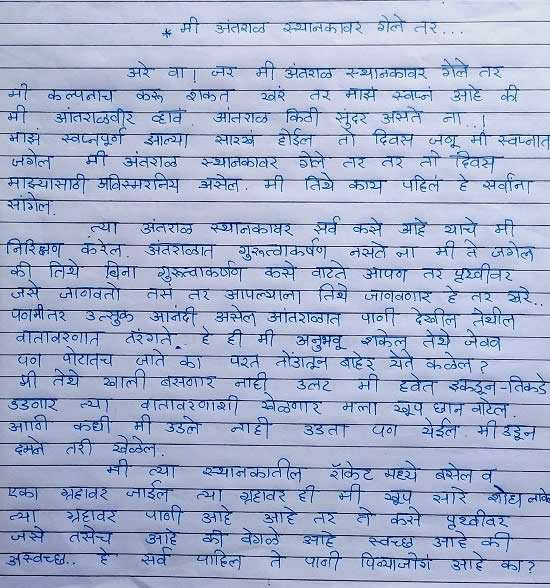 * मी अंतराळ स्थानकावर गेले तर...
अरे वा! जर मी अंतराळ स्थानकावर गेले तर
मी कल्पनाच करू शकत खरं तर माझं स्वप्नं आहे की
मी आंतराळवीर व्हावं आंतराळ किती सुंदर असते ना..!
माझं स्वप्नपूर्ण झाल्या सारखं होईल तो दिवस जणू मी स्वप्नात
जगेल मी अंतराळ स्थानकावर गेले तर तर तो दिवस
माझ्यासाठी अविस्मरनिय असेल. मी तिथे काय पहिलं हे सर्वांना
सांगेल.
त्या अंतराळ स्थानकावर सर्व कसे आहे याचे मी
निरिक्षण करेल. अंतराळात गुरूत्वाकर्षण नसते ना मी ते जगेल
की तिथे बिना गुरूत्वाकर्षण कसे वाटते आपण तर पृथ्वीवर
जसे जाणवतो तसं तर आपल्याना तिथे जाणवणार हे तर खरे..
पणमीतर उत्सुक आनंदी असेल आंतराळात पाणी देखील तेथील
वातावरणात तरंगते. हे ही मी अनुभवू शकेल तेथे जेवण
पण पोटातच जाते का परत तोंडातून बाहेर येते कळेल?
मी तेथे खाली बसणार नाही उलट मी हवेत इकडून-तिकडे
उडणार त्या वातावरणाशी खेळणार मला खूप छान वाटेल
आणि कधी मी उडले नाही उडता पण येईल मी उडून
दमले तरी खेळेल.
मी त्या स्थानकातील रॉकेट मध्ये बसेल व
एका ग्रहावर जाईल त्या ग्रहावर ही मी खूप सारे शोध लावे
त्या ग्रहावर पाणी आहे आहे तर ते कसे पृथ्वीवर
जसे तसेच आहे की वेगळे आहे स्वच्छ आहे की
अस्वच्छ.. हे सर्व पाहिल ते पाणी पिण्याजोगं आहे का?